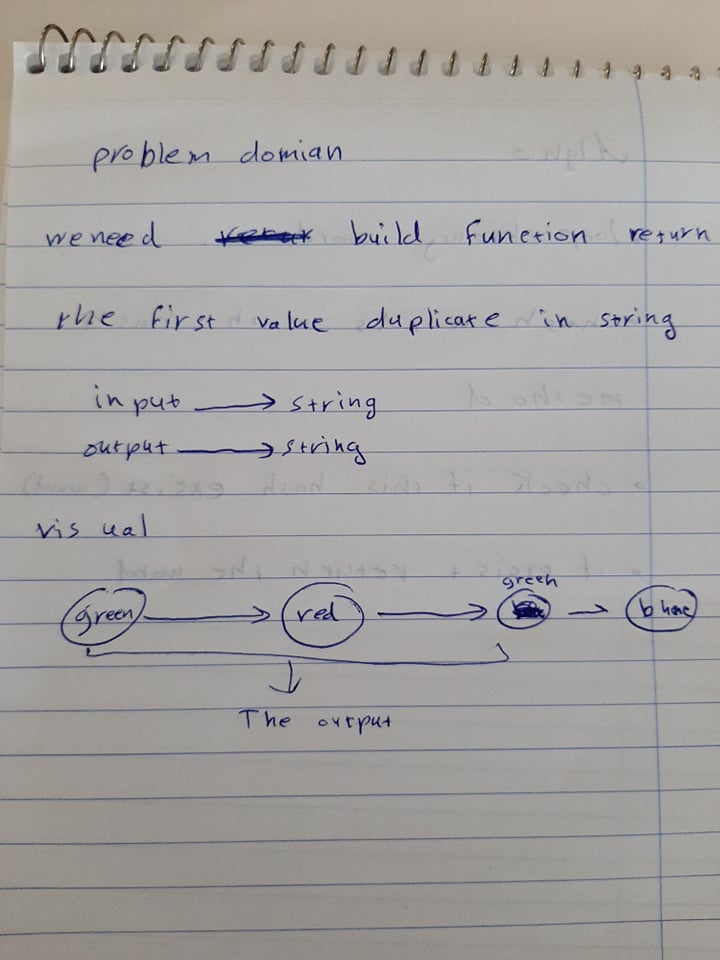 problem domian
we need build function return
the first value duplicate in string
input → string
output → string
visual
green
green → red → →
The output